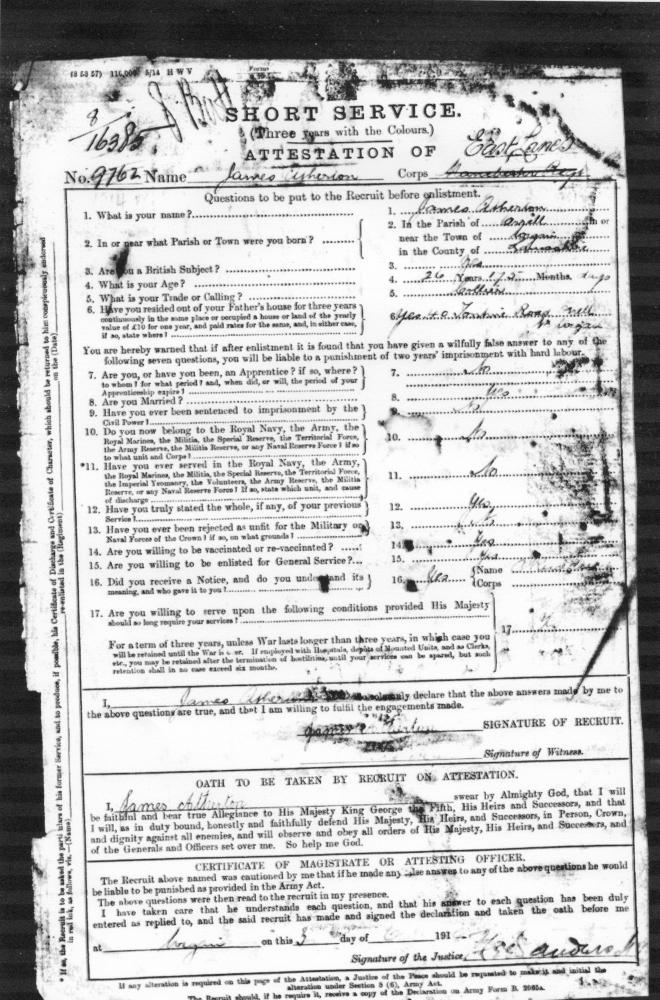 (8 53 57) 116,000 5/14 H W V Forms
8
16385
SHORT SERVICE.
(Three years with the Colours.)
ATTESTATION OF
East Lancs
No. 9762 Name James Atherton Corps
Questions to be put to the Recruit before enlistment.
1. What is your name?
1. James Atherton
2. In or near what Parish or Town were you born?
2. In the Parish of in or
near the Town of
in the County of
3. Are you a British Subject?
3. Yes
4. What is your Age?
4. 26 Years 175 Months. days
5. What is your Trade or Calling?
5.
6. Have you resided out of your Father's house for three years
continuously in the same place or occupied a house or land of the yearly
value of £10 for one year, and paid rates for the same, and, in either case,
if so, state where?
6. Yes Road
wigan
You are hereby warned that if after enlistment it is found that you have given a wilfully false answer to any of the
following seven questions, you will be liable to a punishment of two years' imprisonment with hard labour.
7. Are you, or have you been, an Apprentice? if so, where?
to whom? for what period? and, when did, or will, the period of your
Apprenticeship expire?
7. No
8. Are you Married?
8. Yes
9. Have you ever been sentenced to imprisonment by the
Civil Power?
9. No
10. Do you now belong to the Royal Navy, the Army, the
Royal Marines, the Militia, the Special Reserve, the Territorial Force,
the Army Reserve, the Militia Reserve, or any Naval Reserve Force? If so
to what unit and Corps?
10. No
*11. Have you ever served in the Royal Navy, the Army,
the Royal Marines, the Militia, the Special Reserve, the Territorial Force,
the Imperial Yeomanry, the Volunteers, the Army Reserve, the Militia
Reserve, or any Naval Reserve Force? If so, state which unit, and cause
of discharge
11. No
12. Have you truly stated the whole, if any, of your previous
Service?
12. Yes
13. Have you ever been rejected as unfit for the Military or
Naval Forces of the Crown? if so, on what grounds?
13. No
14. Are you willing to be vaccinated or re-vaccinated?
14. Yes
15. Are you willing to be enlisted for General Service?
15. Yes
16. Did you receive a Notice, and do you understand its
meaning, and who gave it to you?
16. Yes Name
Corps
17. Are you willing to serve upon the following conditions provided His Majesty
should so long require your services?
For a term of three years, unless War lasts longer than three years, in which case you
will be retained until the War is over. If employed with Hospitals, depots of Mounted Units, and as Clerks,
etc., you may be retained after the termination of hostilities until your services can be spared, but such
retention shall in no case exceed six months.
17.
I, James Atherton do solemnly declare that the above answers made by me to
the above questions are true, and that I am willing to fulfil the engagements made.
James Atherton SIGNATURE OF RECRUIT.
Signature of Witness.
OATH TO BE TAKEN BY RECRUIT ON ATTESTATION.
I, James Atherton swear by Almighty God, that I will
be faithful and bear true Allegiance to His Majesty King George the Fifth, His Heirs and Successors, and that
I will, as in duty bound, honestly and faithfully defend His Majesty, His Heirs, and Successors, in Person, Crown,
and dignity against all enemies, and will observe and obey all orders of His Majesty, His Heirs, and Successors, and
of the Generals and Officers set over me. So help me God.
CERTIFICATE OF MAGISTRATE OR ATTESTING OFFICER.
The Recruit above named was cautioned by me that if he made any false answer to any of the above questions he would
be liable to be punished as provided in the Army Act.
The above questions were then read to the recruit in my presence.
I have taken care that he understands each question, and that his answer to each question has been duly
entered as replied to, and the said recruit has made and signed the declaration and taken the oath before me
at wigan on this 3 day of 191
Signature of the Justice
If any alteration is required on this page of the Attestation, a Justice of the Peace should be requested to make it and initial the
alteration under Section 8 (6), Army Act.
The Recruit should, if he require it, receive a copy of the Declaration on Army Form B. 2065a.
* If so, the Recruit is to be asked the particulars of his former Service, and to produce, if possible, his Certificate of Discharge and Certificate of Character, which should be returned to him conspicuously endorsed
in red ink, as follows, viz. (Name) re-enlisted in the (Regiment) on the (Date)